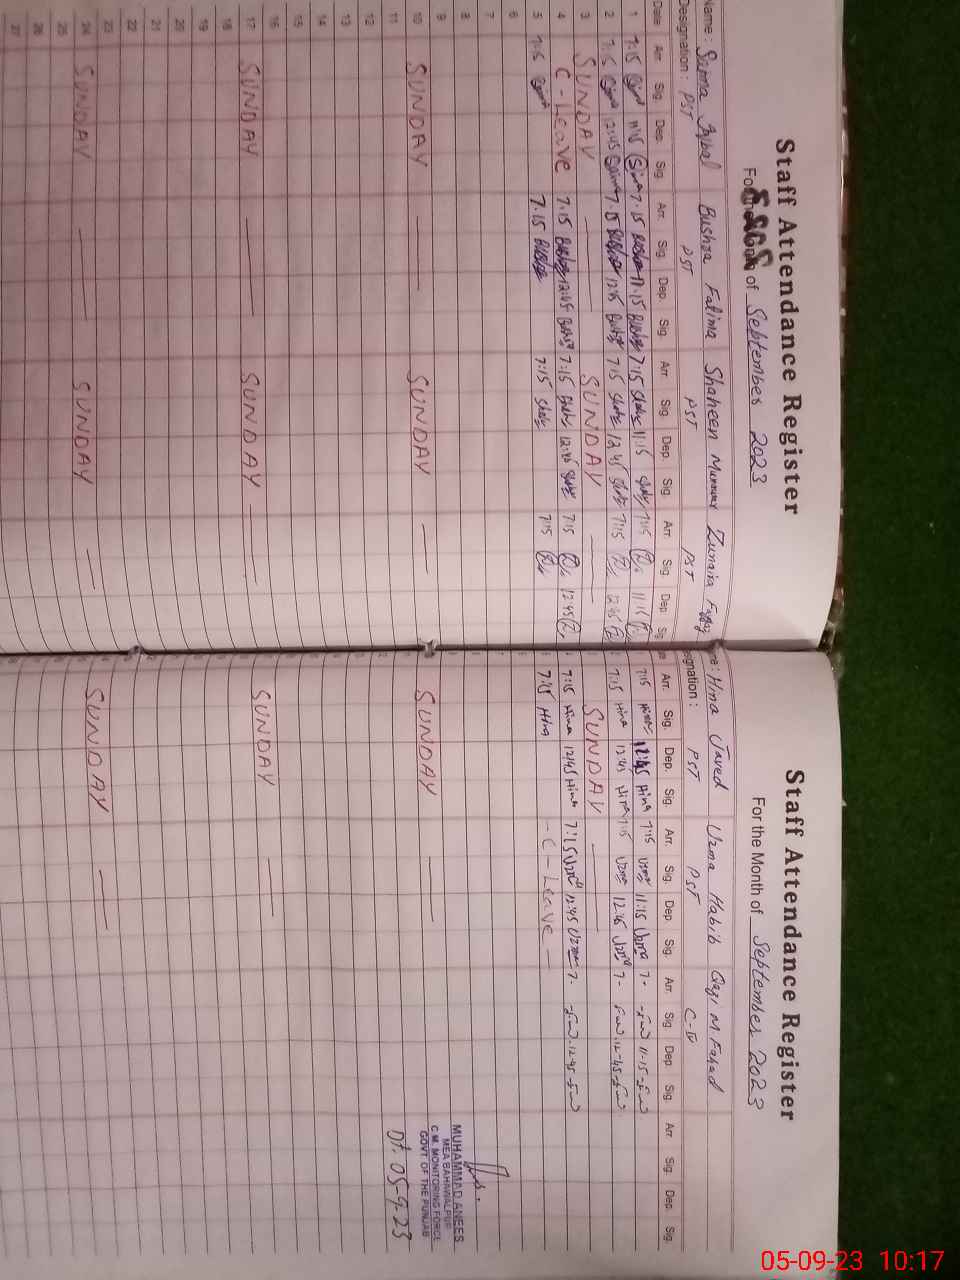 Staff Attendance Register
For the Month of September 2023
Name : Saima Iqbal Bushra Fatima Shaheen Munawar Zunaira
Designation : PST PST PST PST
Date Arr. Sig. Dep. Sig. Arr. Sig. Dep. Sig. Arr. Sig. Dep. Sig. Arr. Sig. Dep Sig
1 7:15 11:15 7.15 11.15 7:15 11:15 7:15 11:15
2 7:15 12:45 7.15 12:45 7:15 12:45 7:15 12:45
3 SUNDAY SUNDAY
4 C-Leave 7.15 12:45 7:15 12:45 7:15 12:45
5 7:15 7.15 7:15 7:15
6
7
8
9
10 SUNDAY SUNDAY
11
12
13
14
15
16
17 SUNDAY SUNDAY
18
19
20
21
22
23
24 SUNDAY SUNDAY
25
26
27
Staff Attendance Register
For the Month of September 2023
Hina Javed Uzma Habib Qazi M. Fahad
PST PST C-IV
Arr. Sig. Dep. Sig. Arr. Sig. Dep Sig. Arr. Sig Dep Sig. Arr Sig. Dep Sig.
7:15 Hina Hina 7:15 Uzma 11:15 Uzma 7- 11-15
7:15 Hina 12:45 Hina 7:15 Uzma 12:45 Uzma 7- 12-45
SUNDAY
7:15 Hina 12:45 Hina 7:15 Uzma 12:45 Uzma 7- 12-45
7:15 Hina -C-Leave-
SUNDAY
SUNDAY
SUNDAY
MUHAMMAD ANEES
MEA BAHAWALPUR
C.M. MONITORING FORCE
GOVT. OF THE PUNJAB
Dt. 05-9-23
05-09-23 10:17